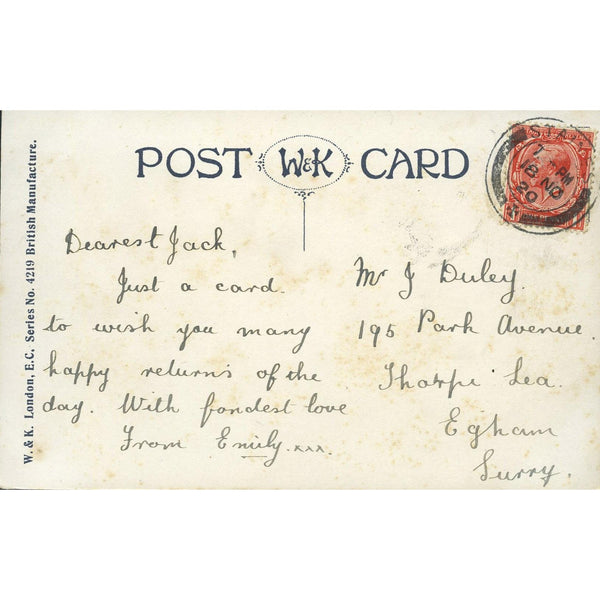 POST W&K CARD
W. & K. London, E.C. Series No. 4219 British Manufacture.
7 PM
8 NO
20
Dearest Jack,
Just a card.
to wish you many
happy returns of the
day. With fondest love
From Emily. xxx.
Mr J Duley.
195 Park Avenue
Thorpe Lea.
Egham
Surry.